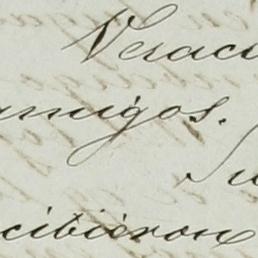 Verac
amigos.
Su
cibieron